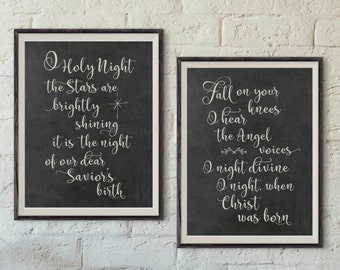 O Holy Night
the Stars are
brightly
shining
it is the night
of our dear
Savior's
birth
Fall on your
knees
O hear
the Angel
voices
O night divine
O night, when
Christ
was born